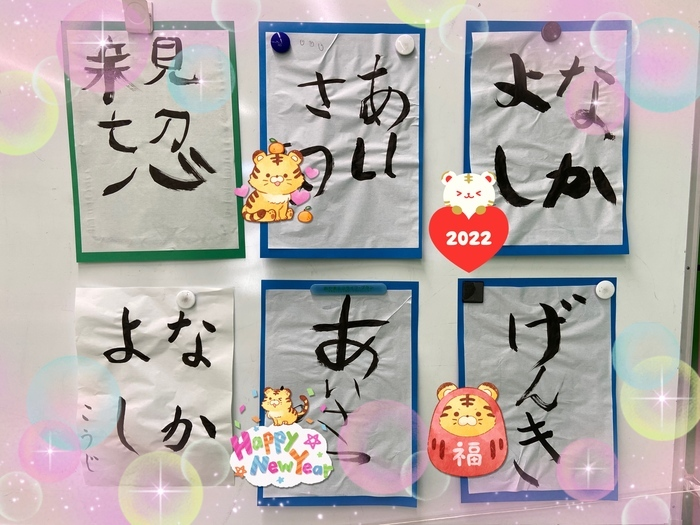 あい
さつ
なか
よし
2022
なか
よし
こうじ
あいさつ
Happy
New Year
げんき
福